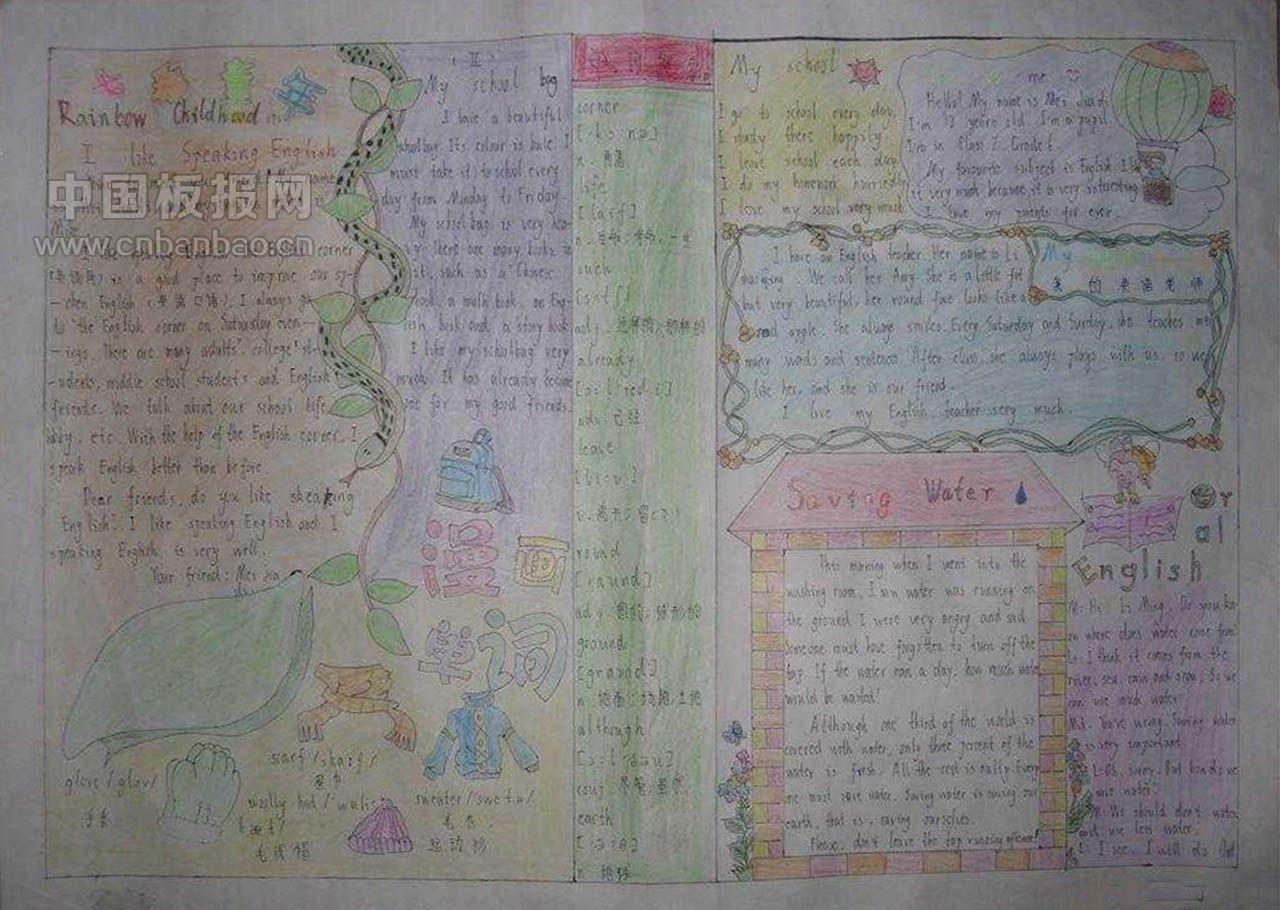 七 彩 童 年
Rainbow Childhood
I like Speaking English
中国板报网
www.cnbanbao.cn
English corner
(英语角) is a good place to improve our sp-
-oken English (英语口语). I always go
to the English corner on Saturday even-
-ings. There are many adults, college st-
-udents, middle school students and English
friends. We talk about our school life,
etc. With the help of the English corner, I
speak English better than before.
Dear friends, do you like speaking
English? I like speaking English and I
speaking English is very well.
Your friend: Mei Jia
My school bag
I have a beautiful
schoolbag. Its colour is bule. I
must take it to school every
day from Monday to Friday.
My schoolbag is very hea-
vy. There are many books in
it, such as a Chinese
book, a math book, an Eng-
lish book and a story book
I like my schoolbag very
much. It has already become
one for my good friends.
漫画
单词
glove /glʌv/
手套
scarf /skɑ:f/
围巾
woolly hat /'wuli
hæt/
毛线帽
sweater /'swetə/
毛衣
运动衫
corner
['kɔ:nə]
n. 角落
life
[laif]
such
[sʌtʃ]
adj. 这样的;那样的
already
[ɔ:l'redi]
adv. 已经
leave
[li:v]
v. 离开;留(下)
round
[raund]
adj. 圆的;球形的
ground
[graund]
n. 地面;场地;土地
although
[ɔ:l'ðəu]
conj. 尽管;虽然
earth
[ə:θ]
n. 地球
My school
I go to school every day.
I study there happily.
I leave school each day.
I do my homework hurriedly
I love my school very much
me
Hello! My name is Mei Jiadi
I'm 13 years old. I'm a pupil.
I'm in Class 2, Grade 6
My favourite subject is English. I like
it very much because it is very interesting
I love my parents for ever.
My
我的英语老师
I have an English teacher. Her name is Li
We call her Amy. She is a little fat
but very beautiful, her round face looks like a
red apple. She always smiles. Every Saturday and Sunday, she teaches me
many words and sentence. After class, she always plays with us, so we
like her, and she is our friend.
I love my English teacher very much.
Saving Water
This morning when I went into the
washing room, I saw water was running on
the ground. I were very angry and said
Someone must have forgotten to turn off the
tap. If the water ran a day, how much water
would be wasted!
Although one third of the world is
covered with water, only three percent of the
water is fresh. All the rest is salty. Every
one must save water. Saving water is saving our
earth, that is, saving ourselves.
Please, don't leave the tap running
Oral
English
M: Hi, Li Ming. Do you kn-
ow where does water come from
Li: I think it comes from the
river, sea, rain and snow. So we
can use much water.
M: You're wrong. Saving water
is very important.
L: Oh, sorry. But how do we
save water?
M: We should don't water
and use less water.
L: I see. I will do that